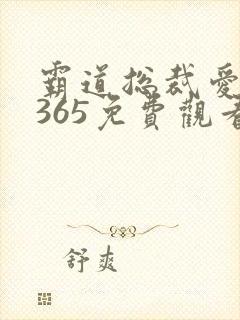 霸道总裁爱
365免費觀看
舒爽